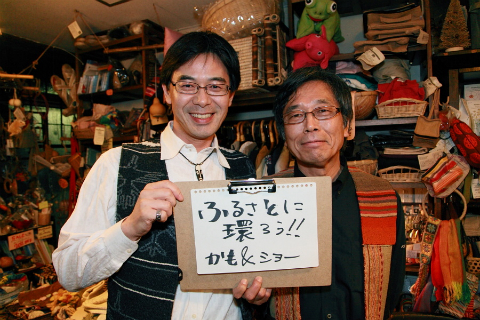 ふるさとに
環ろう!!
かも&ショー